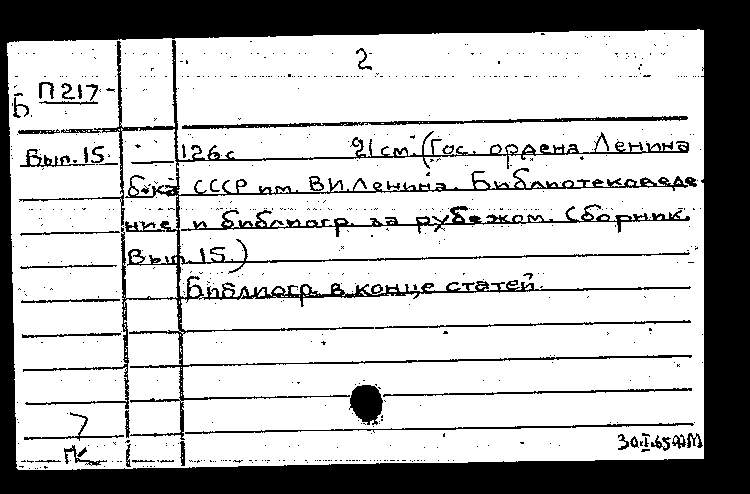 2
П217
Б
Вып. 15. 126с 21 см. (Гос. ордена Ленина
б-ка СССР им. В.И.Ленина. Библиотековеде-
ние и библиогр. за рубежом. Сборник.
Вып. 15.)
Библиогр. в конце статей.
30.I.65